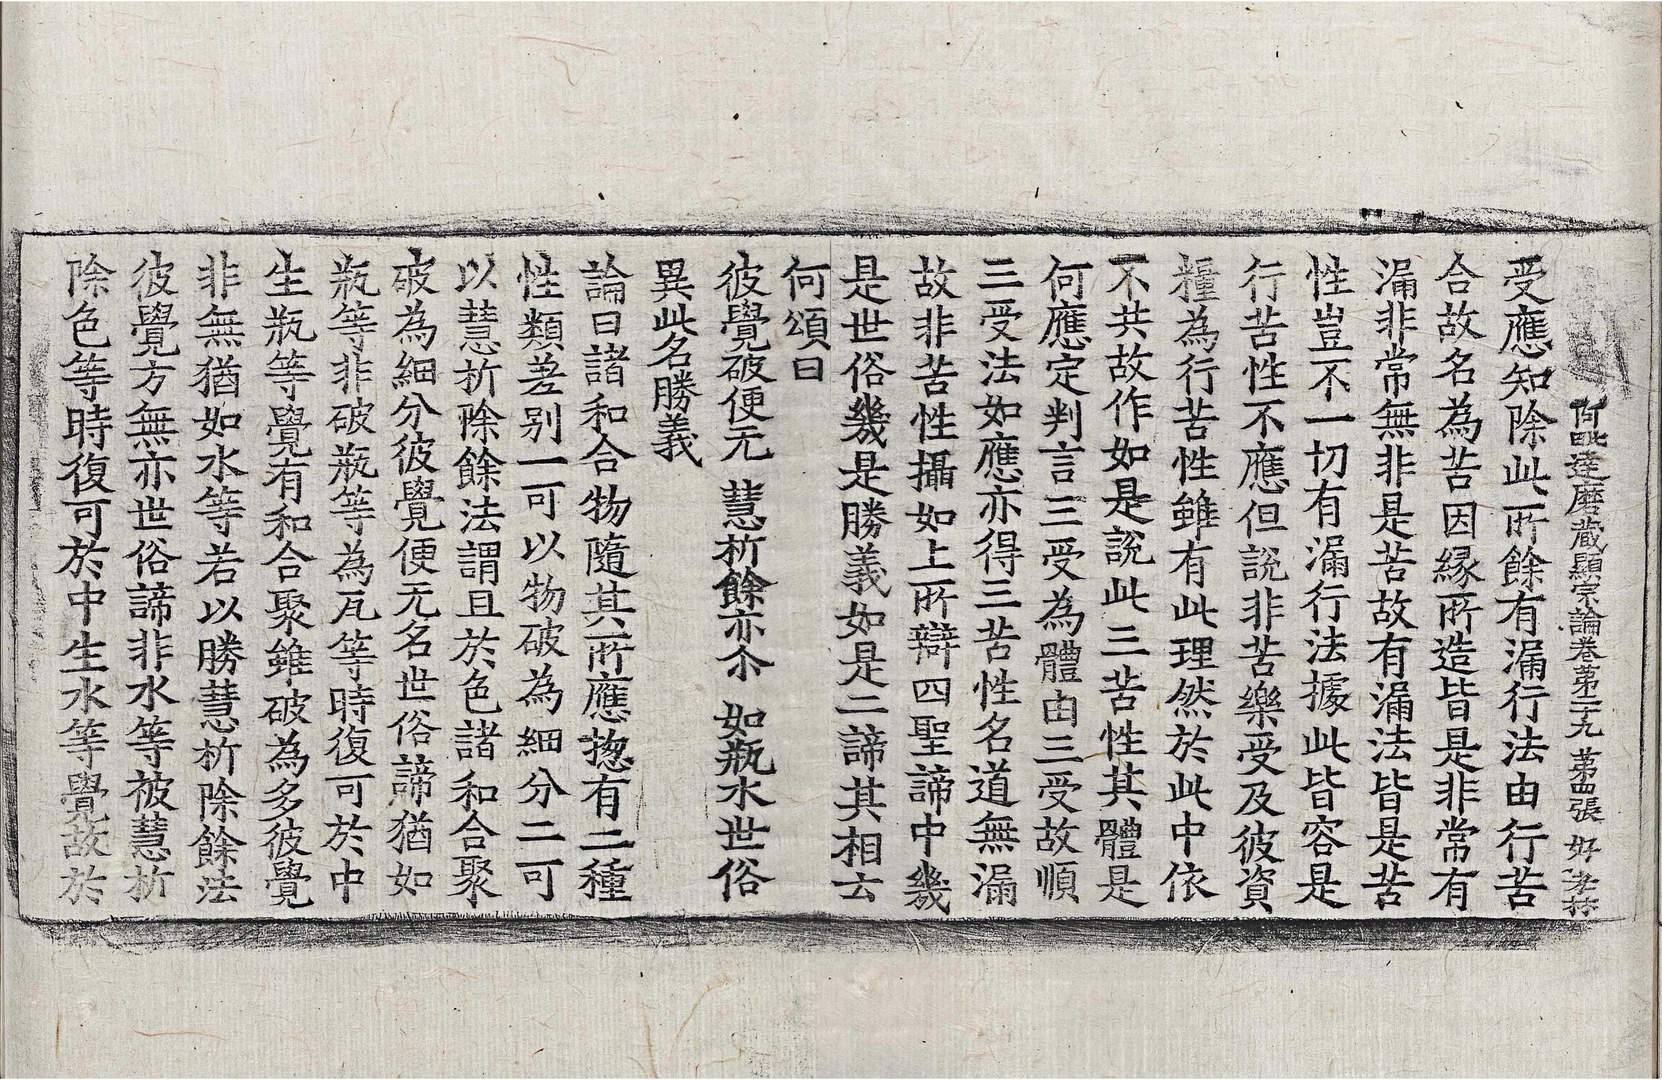 阿毗達磨蔵顯宗論卷苐二十九 苐四張 好 孝林
受應知除此所餘有漏行法由行苦
合故名為苦因縁所造皆是非常有
漏非常無非是苦故有漏法皆是苦
性豈不一切有漏行法據此皆容是
行苦性不應但說非苦樂受及彼資
糧為行苦性雖有此理然於此中依
不共故作如是說此三苦性其體是
何應定判言三受為體由三受故順
三受法如應亦得三苦性名道無漏
故非苦性攝如上所辯四聖諦中幾
是世俗幾是勝義如是二諦其相云
何頌曰
彼覺破便无 慧析餘亦尒 如瓶水世俗
異此名勝義
論曰諸和合物隨其所應揔有二種
性類差别一可以物破為細分二可
以慧析除餘法謂且於色諸和合聚
破為細分彼覺便无名世俗諦猶如
瓶等非破瓶等為瓦等時復可於中
生瓶等覺有和合聚雖破為多彼覺
非無猶如水等若以勝慧析除餘法
彼覺方無亦世俗諦非水等被慧析
除色等時復可於中生水等覺故於